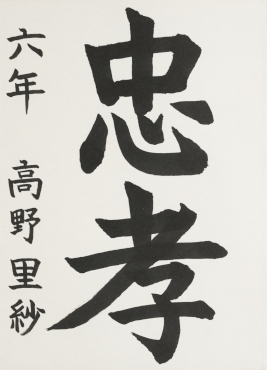 忠孝
六年 高野里紗